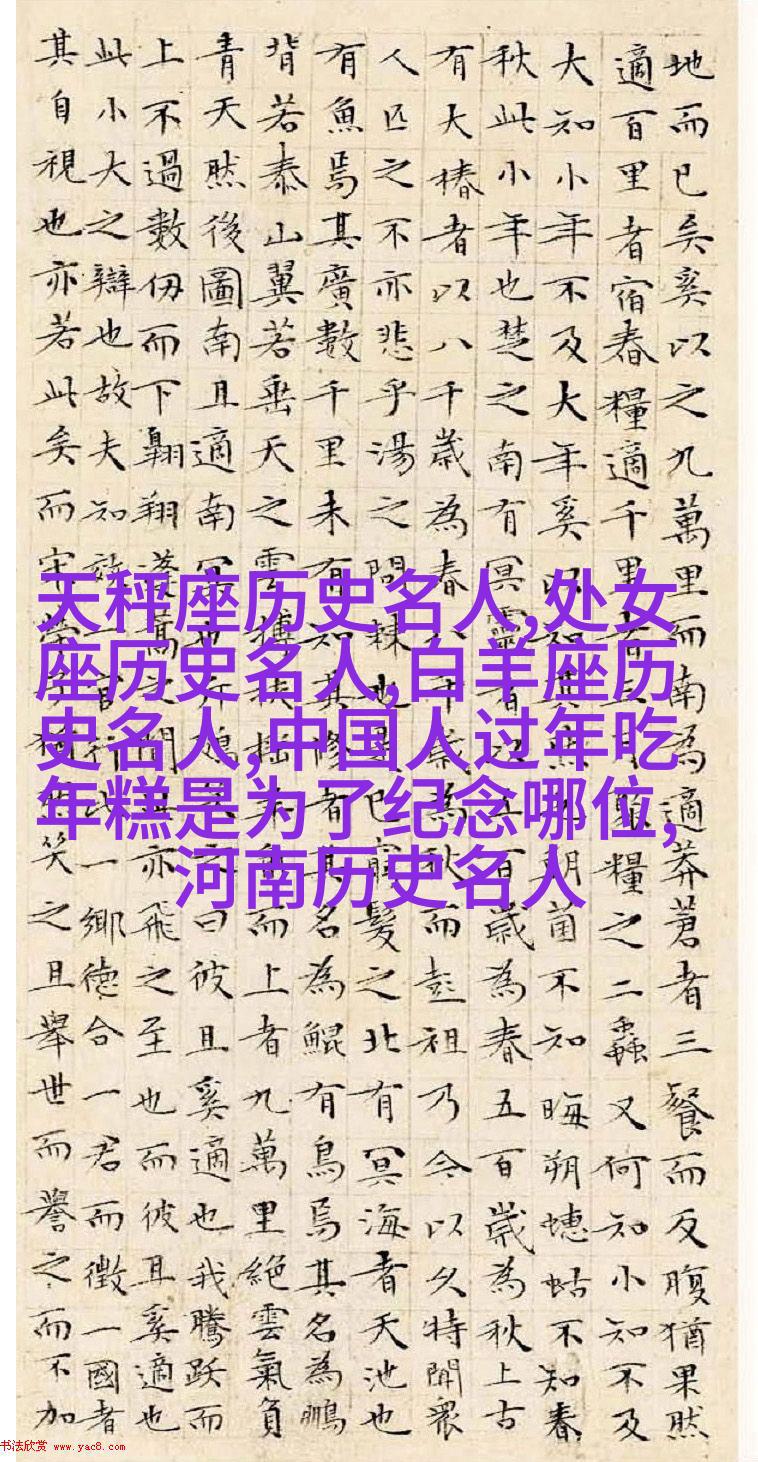 地而已矣奚以之九萬里而南為適莽蒼者三餐而反腹猶果然
適百里者宿舂糧適千里者三月聚糧之二蟲又何知小知不及
大知小年不及大年奚以知其然也朝菌不知晦朔蟪蛄不知春
秋此小年也楚之南有冥靈者以五百歲為春五百歲為秋上古
有大椿者以八千歲為春八千歲為秋而彭祖乃今以久特聞衆
人匹之不亦悲乎湯之問棘也是已窮髮之北有冥海者天池也
有魚焉其廣數千里未有知其脩者其名為鯤有鳥焉其名為鵬
背若泰山翼若垂天之雲摶扶搖羊角而上者九萬里絕雲氣負
青天然後圖南且適南冥也斥鴳笑之曰彼且奚適也我騰躍而
上不過數仞而下翱翔蓬蒿之間此亦飛之至也而彼且奚適也
此小大之辯也故夫知效一官行比一鄉德合一君而徵一國者
其自視也亦若此矣而宋榮子猶然笑之且舉世而譽之而不加
天秤座历史名人,处女
座历史名人,白羊座历
史名人,中国人过年吃
年糕是为了纪念哪位,
河南历史名人
书法欣赏 www.yac8.com